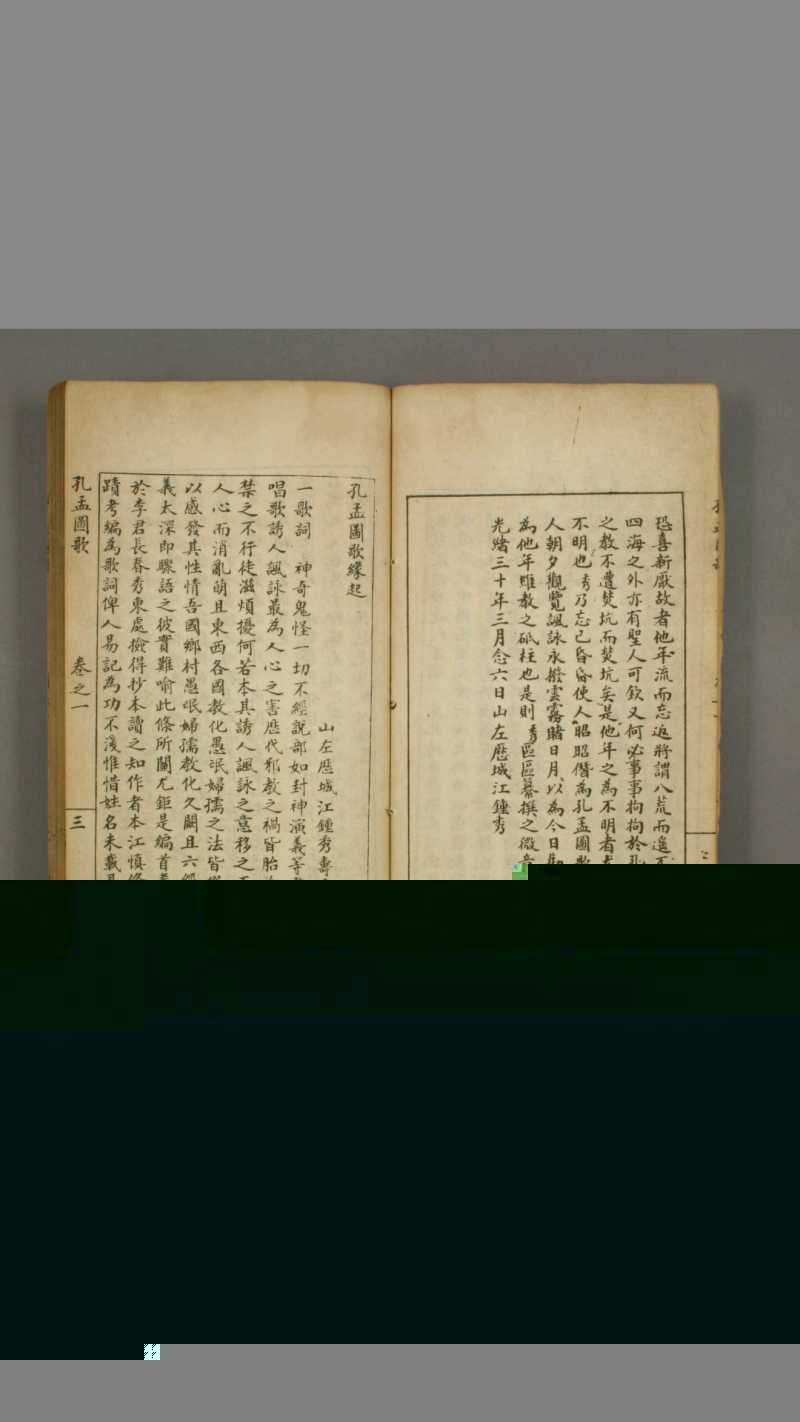 恐喜新厭故者他年流而忘返將謂八荒而遥
四海之外亦有聖人可欽又何必事事拘拘於孔
之教不遭焚坑而焚坑矣是他年之為不明者
不明也秀乃忘己昏昏使人昭昭僭為孔孟圖歌
人朝夕觀覽諷詠永撥雲霧睹日月以為今日
為他年雖教之砥柱也是則秀區區纂撰之微意
光緒三十年三月念六日山左歷城江鍾秀
孔孟圖歌緣起
山左歷城江鍾秀壽
一歌詞 神奇鬼怪一切不經說部如封神演義等
唱歌誘人諷詠最為人心之害歷代邪教之禍皆胎
禁之不行徒滋煩擾何若本其誘人諷詠之意移之
人心而消亂萌且東西各國教化愚氓婦孺之法皆
以感發其性情吾國鄉村愚氓婦孺教化久闕且六經
義太深即驟語之彼實難喻此條所關尤鉅是編首
於李君長春秀東處撿得抄本讀之知作者本江慎修
蹟考編為歌詞俾人易記為功不淺惟惜姓名未載
孔孟圖歌 卷之一 三